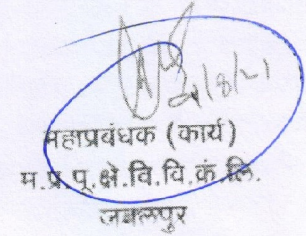 महाप्रबंधक (कार्य)
म.प्र.पू.क्षे.वि.वि.कं.लि.
जबलपुर